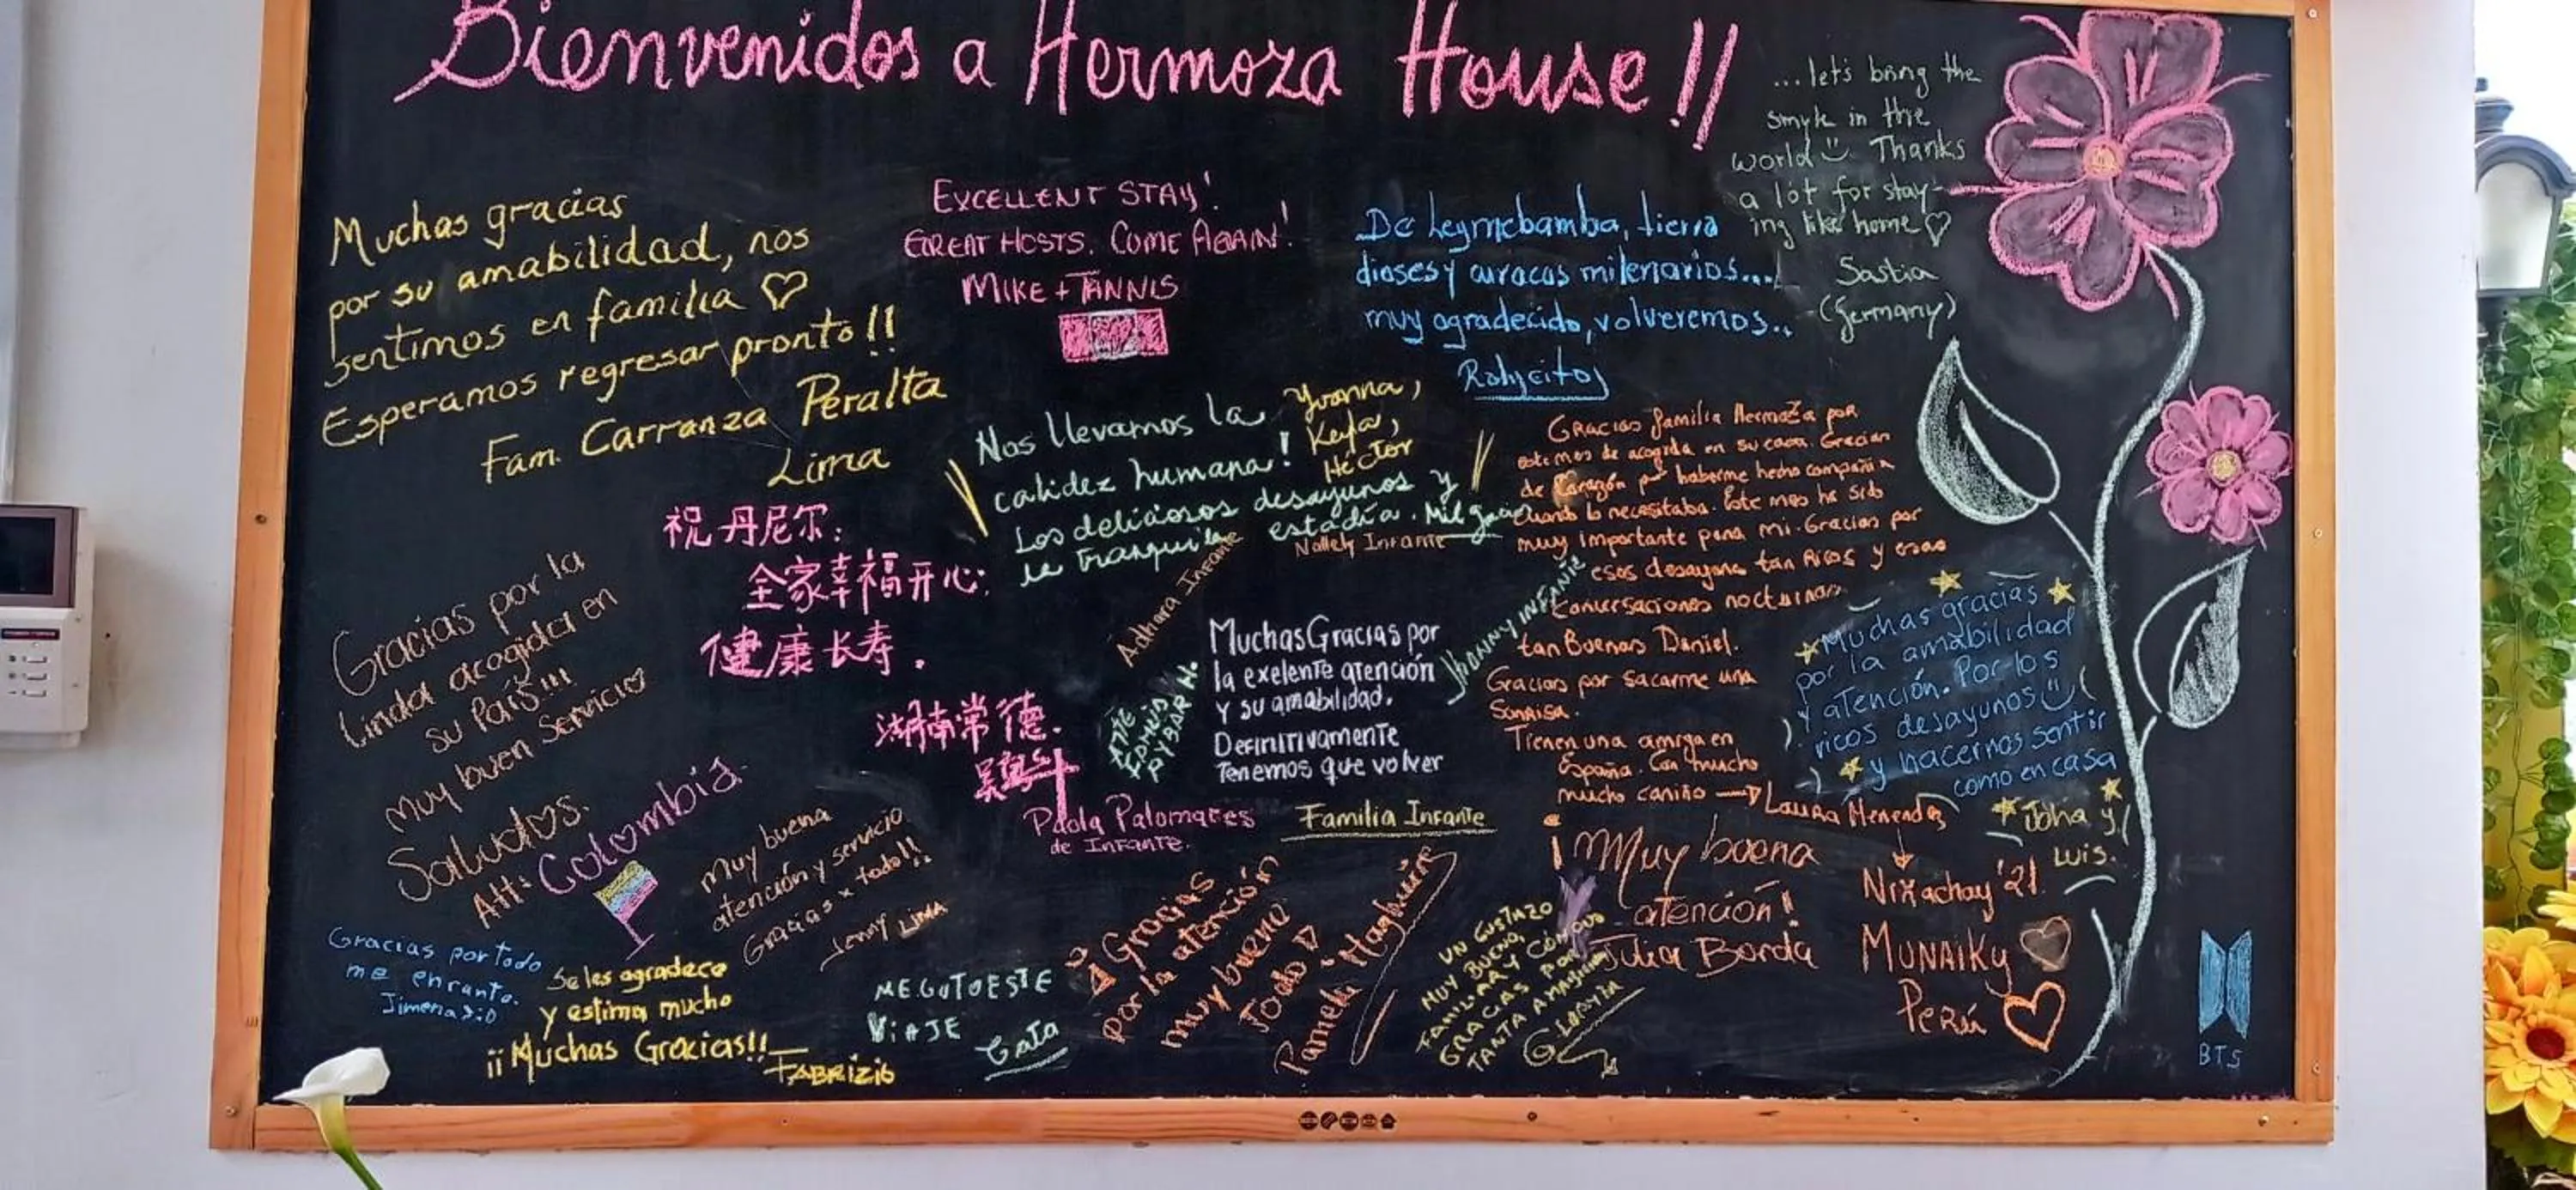 Bienvenidos a Hermoza House !!
...let's bring the
smyle in the
world Thanks
a lot for stay-
ing like home
Saskia
(Germany)
Muchas gracias
por su amabilidad, nos
sentimos en familia
Esperamos regresar pronto!!
Fam. Carranza Peralta
Lima
EXCELLENT STAY!
GREAT HOSTS. COME AGAIN!
MIKE + TANNIS
De Leymebamba, tierra
dioses y curacas milenarios...
muy agradecido, volveremos..
Nos llevamos la
calidez humana!
Los deliciosos desayunos y
la tranquila estadía. Mil gracias
Yvanna,
Keyla,
Héctor
Nallely Infante
Adhara Infante
JHONNY INFANTE
Gracias familia HermoZa por
este mes de acogida en su casa. Gracias
de Corazón por haberme hecho compañia
cuando lo necesitaba. Este mes ha sido
muy importante para mi. Gracias por
esos desayunos tan Ricos y esas
conversaciones nocturnas
tan Buenas Daniel.
Gracias por sacarme una
Sonrisa.
Tienen una amiga en
España. Con mucho
mucho cariño → Laura Menendez
祝丹尼尔:
全家幸福开心;
健康长寿.
湖南常德.
Gracias por la
linda acogida en
su País!!!
muy buen Servicio
Saludos.
Att: Colombia.
Muchas Gracias por
la exelente atención
y su amabilidad.
Definitivamente
Tenemos que volver
Familia Infante
Paola Palomares
de Infante.
Muchas gracias
por la amabilidad
y atención. Por los
ricos desayunos
y hacernos sentir
como en casa
Joha y
Luis.
Muy buena
atención y servicio
Gracias x todo!!
Jenny LIMA
Gracias por todo
me encanto.
Jimena
Se les agradece
y estima mucho
¡¡Muchas Gracias!!
FABRIZIO
ME GUTO ESTE
VIAJE
Cata
Gracias
por la atención
muy bueno
Todo
UN GUSTAZO
MUY BUENO,
FAMILIAR Y CÓMODO
GRACIAS POR
TANTA AMABILIDAD
¡Muy buena
atención!
Julia Borda
Nixachay '21.
MUNAIKY
Perú
BTS